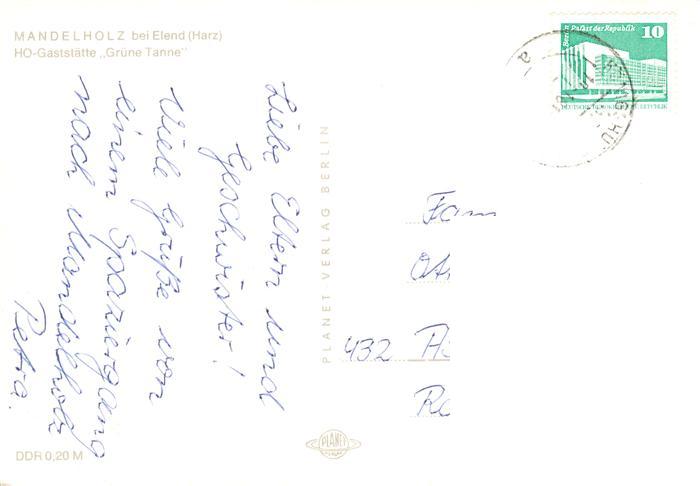 MANDELHOLZ bei Elend (Harz)
HO-Gaststätte „Grüne Tanne"
Liebe Eltern und
Geschwister!
Viele Grüße von
einem Spaziergang
nach Mandelholz
Petra.
DDR 0,20 M
PLANET-VERLAG BERLIN
PLANET
VERLAG
Berlin Palast der Republik 10
Fam
432